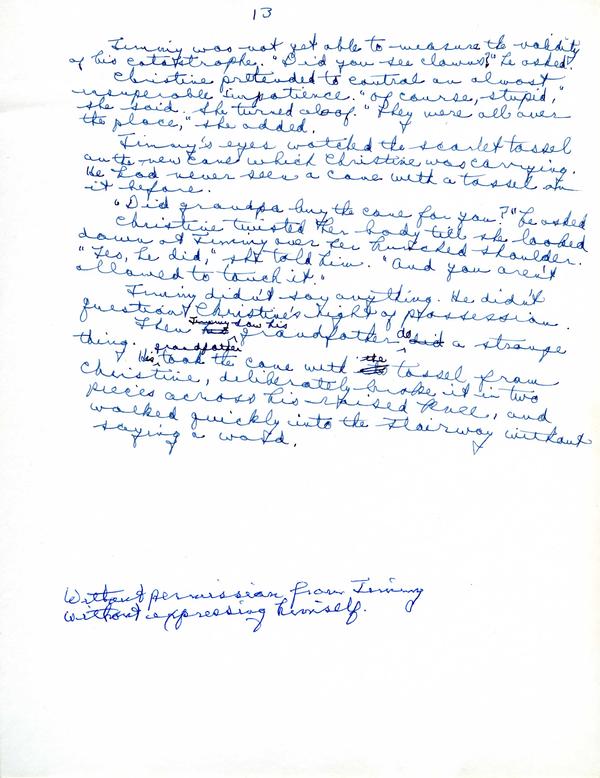 13
Timmy was not yet able to measure the validity
of his catastrophe. "Did you see clowns?" he asked.
Christine pretended to control an almost
insuperable impatience. "Of course, stupid,"
she said. She turned aloof. "They were all over
the place," she added.
Timmy's eyes watched the scarlet tassel
on the new cane which Christine was carrying.
He had never seen a cane with a tassel on
it before.
"Did grandpa buy the cane for you?" he asked
Christine twisted her body till she looked
down at Timmy over her hunched shoulder.
"Yes, he did," she told him. "And you aren't
allowed to touch it."
Timmy didn't say anything. He didn't
question Christine's right of possession.
Then Timmy saw his grandfather do a strange
thing.
His grandfather took the cane with the tassel from
Christine, deliberately broke it in two
pieces across his raised knee, and
walked quickly into the stairway without
saying a word.
Without permission from Timmy
without expressing himself.